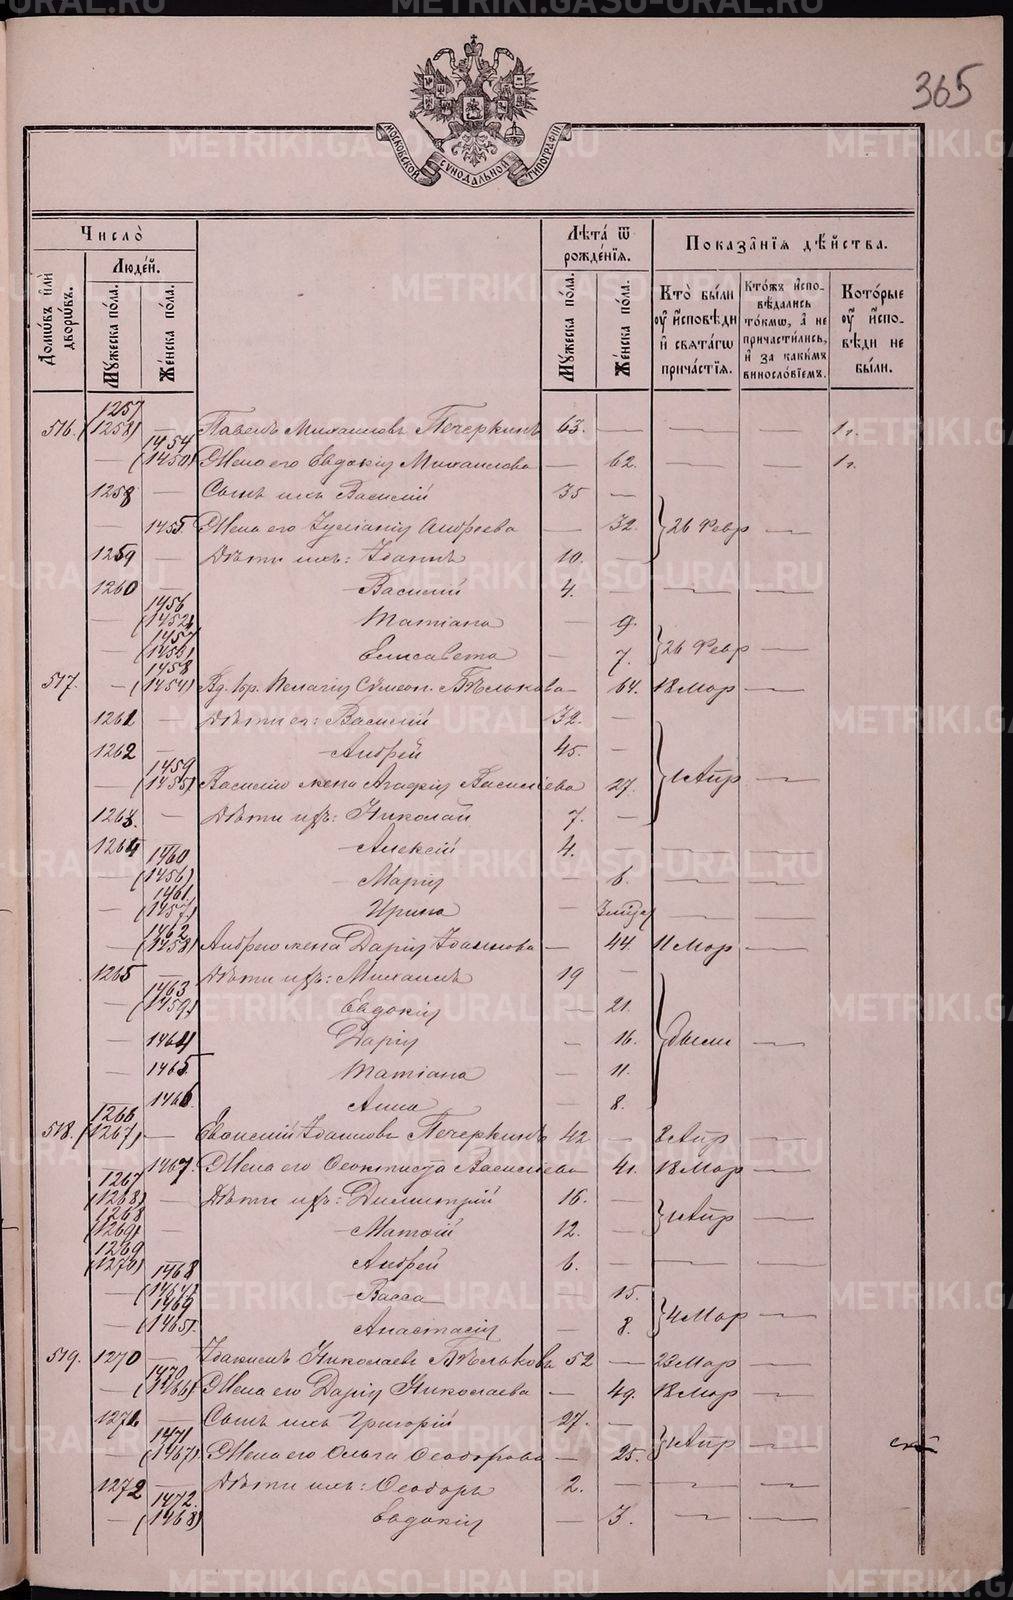 365
МОСКОВСКОЙ СѴНОДАЛЬНОЙ ТИПОГРАФІИ
Число̀
Людей.
Домѡвъ и҆лѝ дворѡвъ.
Мꙋжеска по́ла.
Же́нска по́ла.
Лѣта̀ ѿ рожде́нїѧ.
Мꙋжеска по́ла.
Же́нска по́ла.
Показа̑нїѧ дѣ́йства.
Кто̀ бы́ли ᲂу҆ и҆сповѣ́ди и҆ свѧта́гѡ прича́стїѧ.
Кто́жъ и҆сповѣ́дались то́кмѡ, а҆ не причасти́лись, и҆ за каки́мъ винословїемъ.
Кото́рые ᲂу҆ и҆сповѣ́ди не бы́ли.
1257
516. (1258) — Павелъ Михаиловъ Печеркинъ 63. — — — 1.
1454
— (1450) Жена его Евдокія Михаилова — 62. — — 1.
1258 — Сынъ ихъ Василій 35 —
— 1455 Жена его Іуліанія Андреева — 32. } 26 Февр —
1259 — Дѣти ихъ: Іоаннъ 10. —
1260 — Василій 4. — — —
1456
— (1452) Татіана — 9.
1457
— (1453) Елисавета — 7. } 26 Февр —
1458
517. — (1454) Вд. Пелагія Сѵмеон. Бѣлькова — 64. 18 Мар —
1261 — Дѣти ея: Василій 32. —
1262 — Андрей 45. —
1459
— (1455) Василію жена Агафія Васильева 27. } 1 Апр —
1263. — Дѣти ихъ: Николай 7. —
1264 — Алексій 4. — — —
1460
— (1456) Марія 6. — —
1461
— (1457) Ирина — — —
1462
— (1458) Андрею жена Дарія Іоаннова — 44. 11 Мар —
1265 — Дѣти ихъ: Михаилъ 19 —
1463
— (1459) Евдокія — 21.
— 1464 Дарія — 16. } были —
— 1465 Татіана — 11.
— 1466 Анна — 8.
1266
518. (1267) — Іоанновъ Печеркинъ 42 — 8 Апр —
1467. Жена его Феоктиста Васильева — 41. 18 Мар —
1267
(1268) — Дѣти ихъ: Димитрій 16. —
1268
(1269) — Матѳій 12. — } 1 Апр —
1269
(1270) — Андрей 6. — — —
1468
— (1464) Васса — 15.
1469
— (1465) Анастасія — 8. } 4 Мар —
519. 1270 — Іоакимъ Николаевъ Бѣльковъ 52 — 23 Мар —
1470
— (1466) Жена его Дарія Николаева — 49. 18 Мар —
1271 — Сынъ ихъ Григорій 27. —
1471
— (1467) Жена его Ольга Ѳеодорова — 25. } 1 Апр —
1272 — Дѣти ихъ: Ѳеодоръ 2. — — —
1472.
— (1468) Евдокія — 3. — —
METRIKI.GASO-URAL.RU